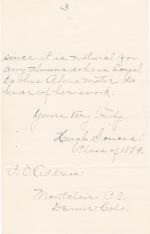 3
since it is natural for
any alumnus who is loyal
to his Alma Mater to
hear of her work.
Yours Very Truly,
Hugh
Class of 1874.
P. O. Address
Montclair P.O.
Denver Colo.